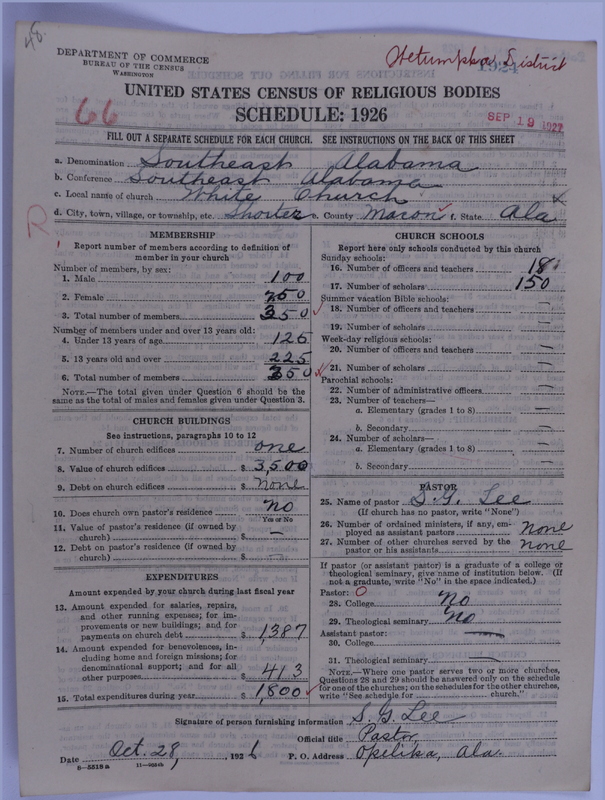 48.
DEPARTMENT OF COMMERCE
BUREAU OF THE CENSUS
WASHINGTON
Wetumpka District
1924
UNITED STATES CENSUS OF RELIGIOUS BODIES
66
SCHEDULE: 1926
SEP 19 1927
FILL OUT A SEPARATE SCHEDULE FOR EACH CHURCH. SEE INSTRUCTIONS ON THE BACK OF THIS SHEET
a. Denomination Southeast Alabama
b. Conference Southeast Alabama
c. Local name of church White Church
d. City, town, village, or township, etc. Shorter e. County Macon f. State Ala
R
MEMBERSHIP
Report number of members according to definition of
member in your church
Number of members, by sex:
1. Male 100
2. Female 250
3. Total number of members 350
Number of members under and over 13 years old:
4. Under 13 years of age 125
5. 13 years old and over 225
6. Total number of members 350
NOTE.—The total given under Question 6 should be the
same as the total of males and females given under Question 3.
CHURCH BUILDINGS
See instructions, paragraphs 10 to 12
7. Number of church edifices one
8. Value of church edifices $ 3,500
9. Debt on church edifices $ none
10. Does church own pastor's residence no
Yes or No
11. Value of pastor's residence (if owned by
church) $ —
12. Debt on pastor's residence (if owned by
church) $ —
EXPENDITURES
Amount expended by your church during last fiscal year
13. Amount expended for salaries, repairs,
and other running expenses; for im-
provements or new buildings; and for
payments on church debt $ 1387
14. Amount expended for benevolences, in-
cluding home and foreign missions; for
denominational support; and for all
other purposes $ 413
15. Total expenditures during year $ 1,800
CHURCH SCHOOLS
Report here only schools conducted by this church
Sunday schools:
16. Number of officers and teachers 18
17. Number of scholars 150
Summer vacation Bible schools:
18. Number of officers and teachers —
19. Number of scholars —
Week-day religious schools:
20. Number of officers and teachers —
21. Number of scholars —
Parochial schools:
22. Number of administrative officers —
23. Number of teachers—
a. Elementary (grades 1 to 8) —
b. Secondary —
24. Number of scholars—
a. Elementary (grades 1 to 8) —
b. Secondary —
PASTOR
25. Name of pastor S. G. Lee
(If church has no pastor, write "None")
26. Number of ordained ministers, if any, em-
ployed as assistant pastors None
27. Number of other churches served by the
pastor or his assistants none
If pastor (or assistant pastor) is a graduate of a college or
theological seminary, give name of institution below. (If
not a graduate, write "No" in the space indicated.)
Pastor: O
28. College no
29. Theological seminary no
Assistant pastor:
30. College —
31. Theological seminary —
NOTE.—Where one pastor serves two or more churches,
Questions 28 and 29 should be answered only on the schedule
for one of the churches; on the schedules for the other churches,
write "See schedule for church."
Signature of person furnishing information S. G. Lee
Official title Pastor,
Date Oct. 28, 1926 P. O. Address Opelika, Ala.
8—5518a 11—9034b